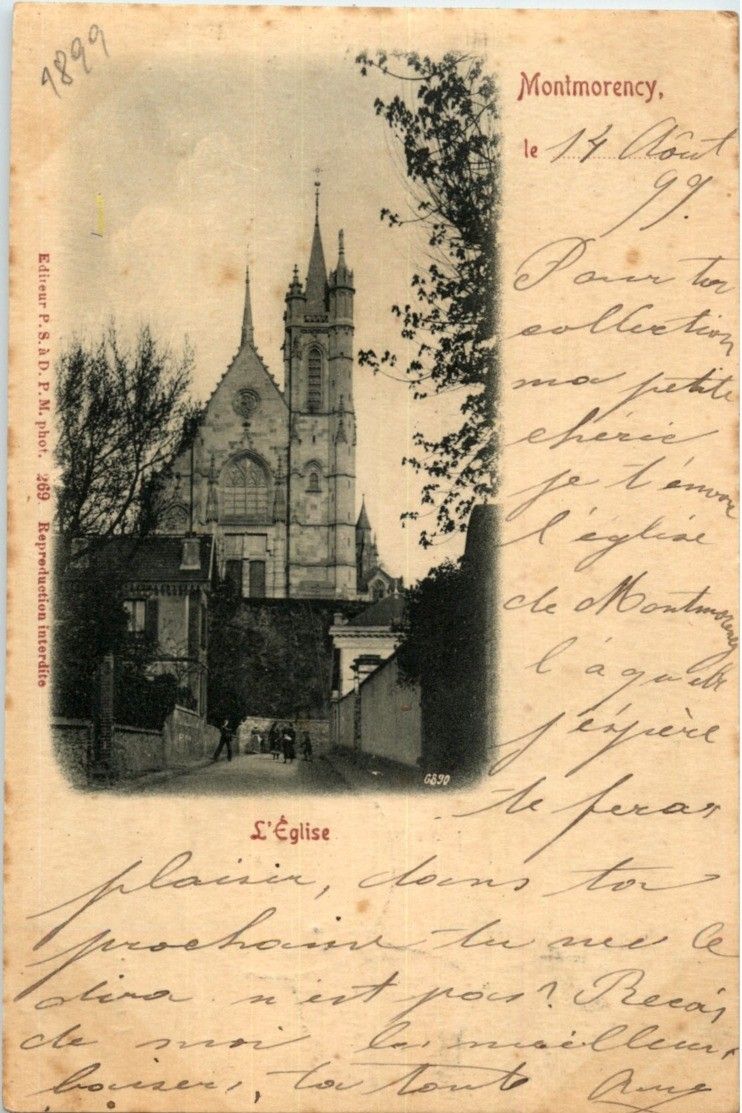 1899
Montmorency,
le 14 Août
99.
Pour ta
collection
ma petite
chérie
je t'envoie
l'église
de Montmorency
laquelle
j'espère
te feras
plaisir, dans ta
prochaine tu me le
dira n'est pas? Reçois
de moi les meilleurs
baisers, ta tante
L'Église
6830
Editeur P. S. à D. P. M. phot. 269 Reproduction interdite